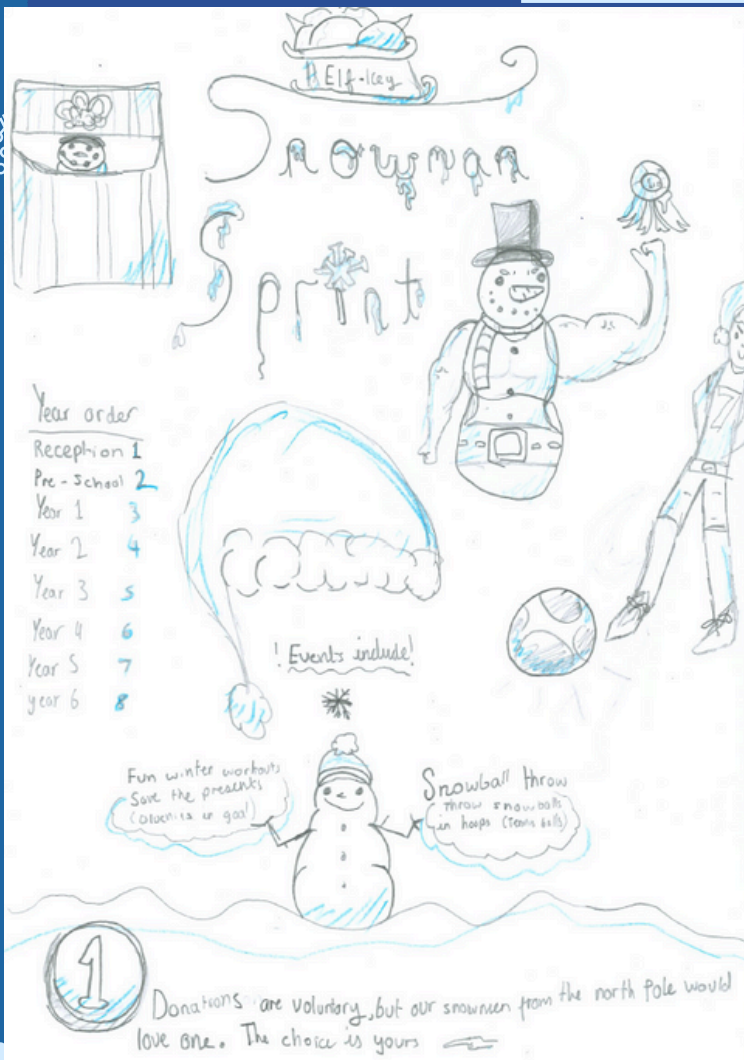 Elf-key
Snowman
Sprint
Year order
Reception 1
Pre-School 2
Year 1 3
Year 2 4
Year 3 5
Year 4 6
Year 5 7
year 6 8
! Events include!
Fun winter workouts
Save the presents
in goal)
Snowball throw
throw snowballs
in hoops (Tennis balls)
1
Donations are voluntary, but our snowmen from the north Pole would
love one. The choice is yours